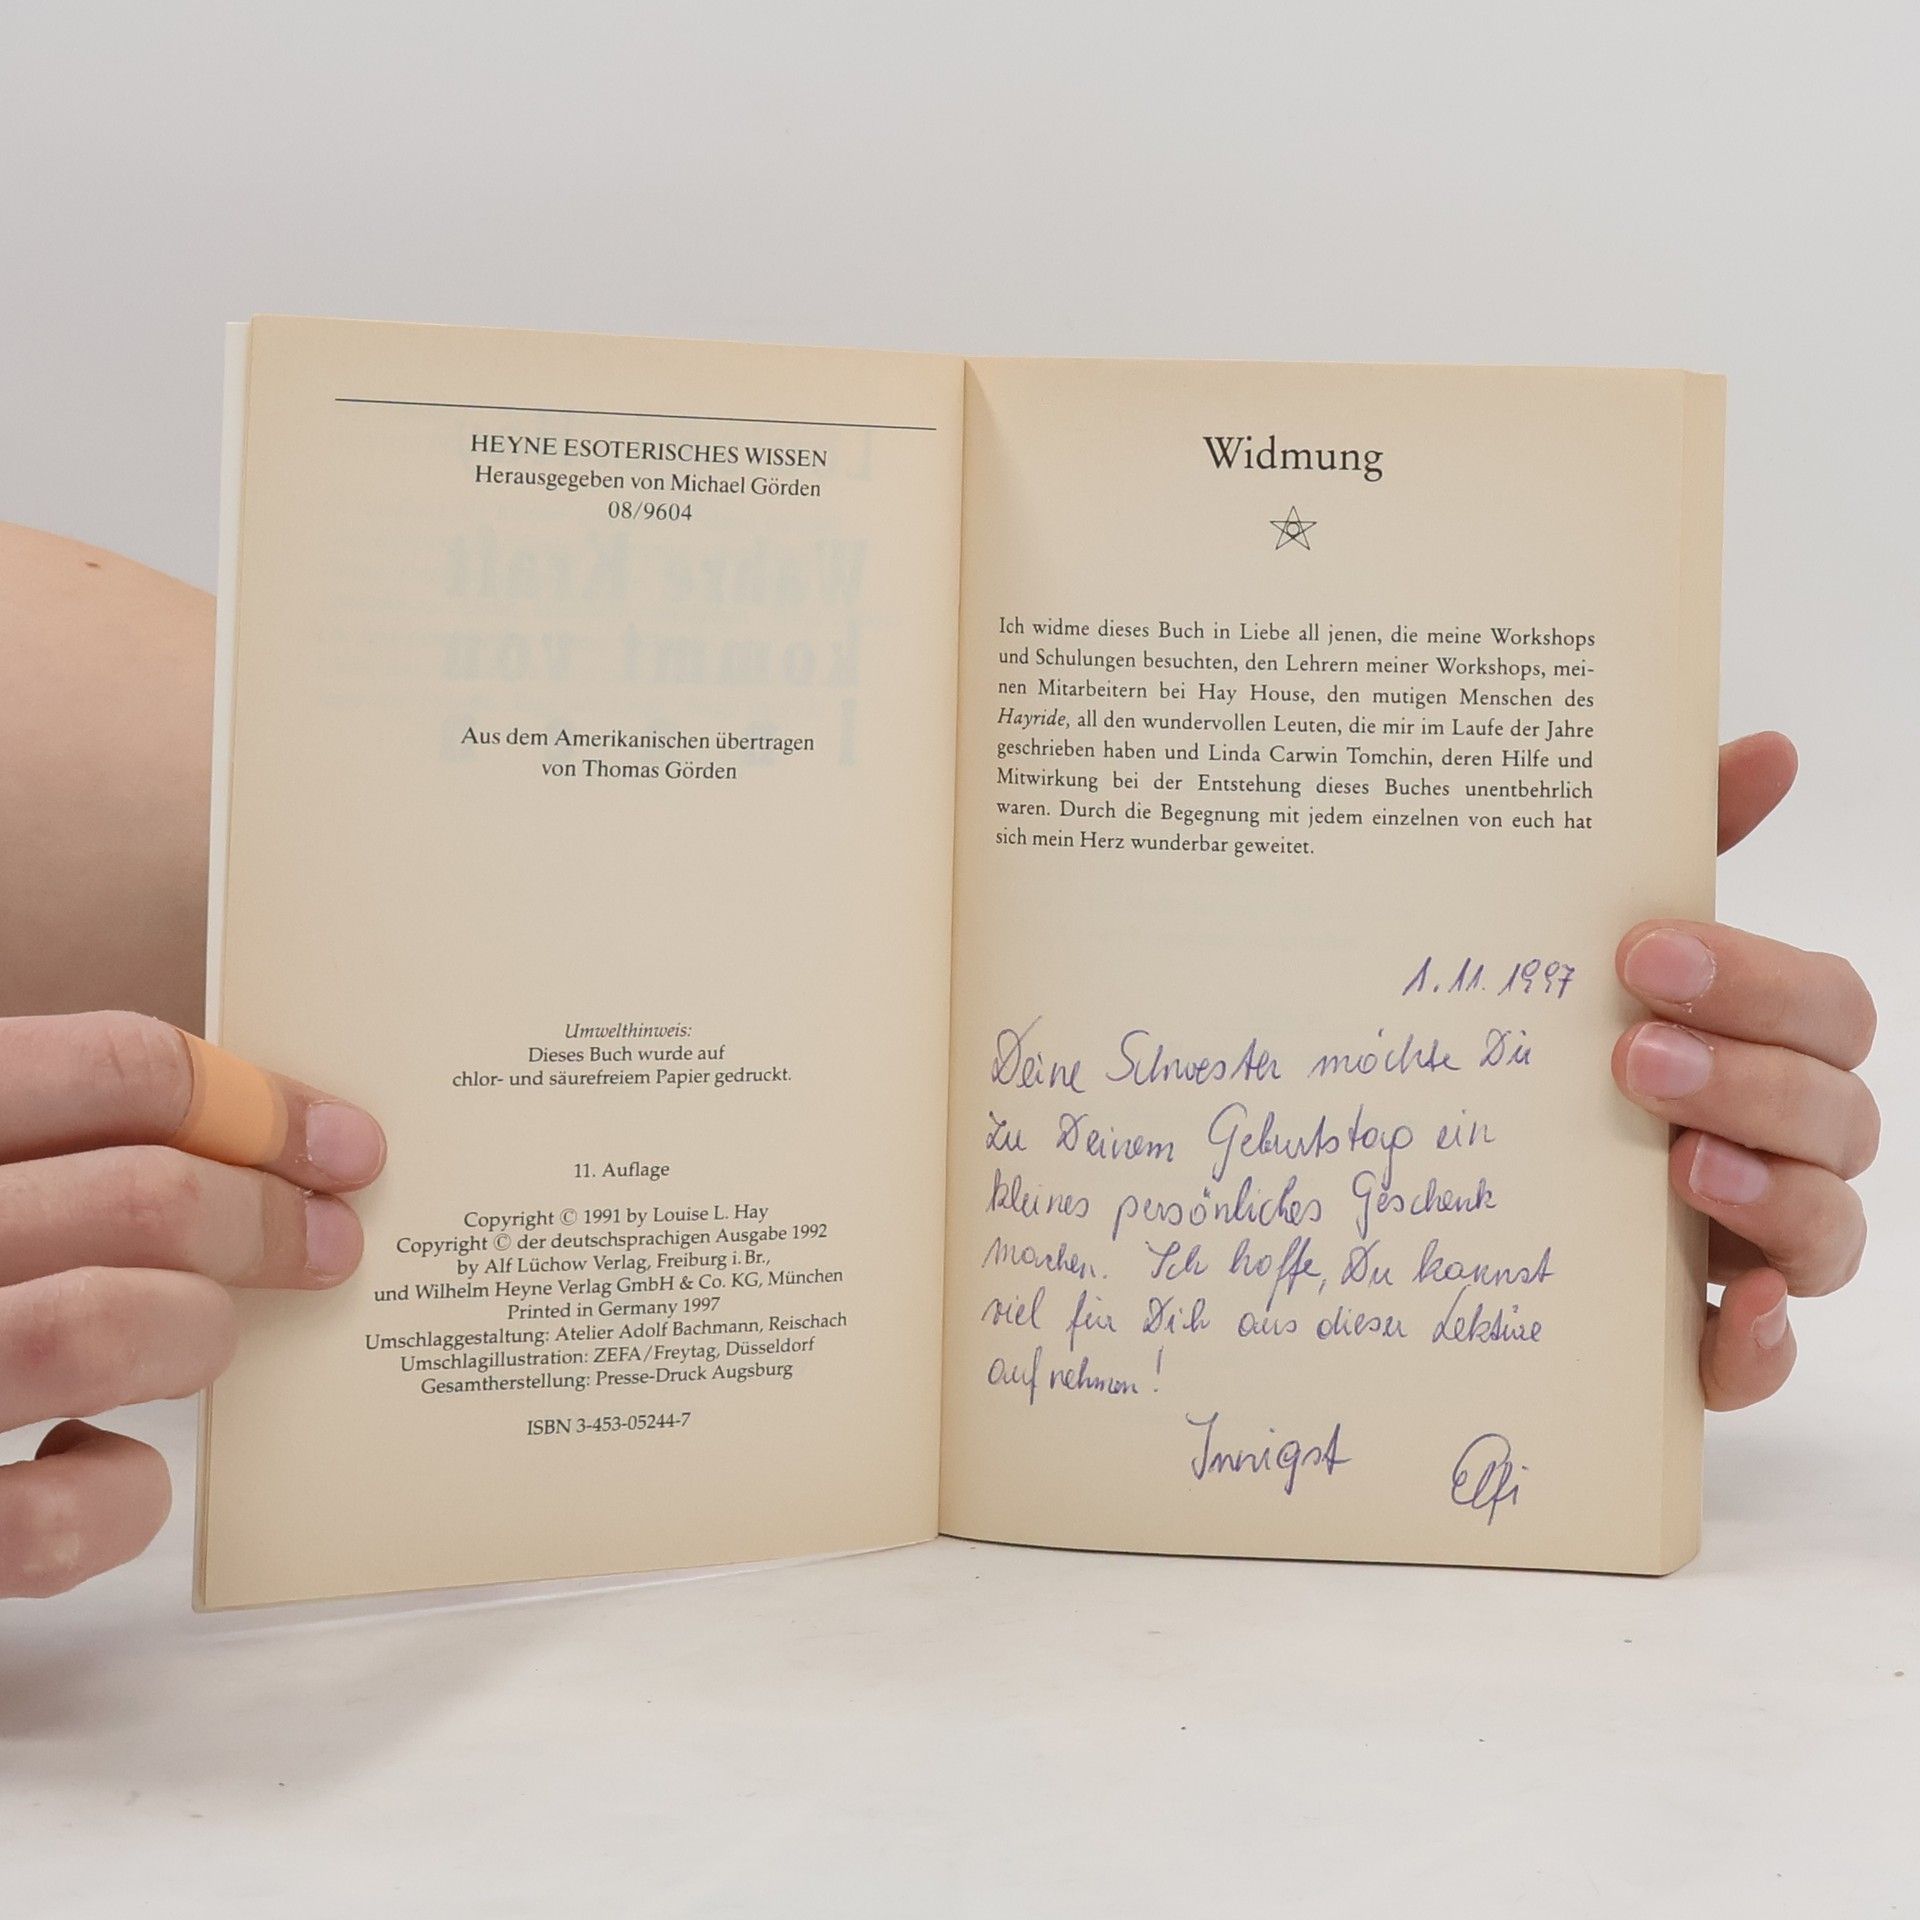 HEYNE ESOTERISCHES WISSEN
Herausgegeben von Michael Görden
08/9604
Aus dem Amerikanischen übertragen
von Thomas Görden
Umwelthinweis:
Dieses Buch wurde auf
chlor- und säurefreiem Papier gedruckt.
11. Auflage
Copyright © 1991 by Louise L. Hay
Copyright © der deutschsprachigen Ausgabe 1992
by Alf Lüchow Verlag, Freiburg i. Br.,
und Wilhelm Heyne Verlag GmbH & Co. KG, München
Printed in Germany 1997
Umschlaggestaltung: Atelier Adolf Bachmann, Reischach
Umschlagillustration: ZEFA/Freytag, Düsseldorf
Gesamtherstellung: Presse-Druck Augsburg
ISBN 3-453-05244-7
Widmung
Ich widme dieses Buch in Liebe all jenen, die meine Workshops
und Schulungen besuchten, den Lehrern meiner Workshops, mei-
nen Mitarbeitern bei Hay House, den mutigen Menschen des
Hayride, all den wundervollen Leuten, die mir im Laufe der Jahre
geschrieben haben und Linda Carwin Tomchin, deren Hilfe und
Mitwirkung bei der Entstehung dieses Buches unentbehrlich
waren. Durch die Begegnung mit jedem einzelnen von euch hat
sich mein Herz wunderbar geweitet.
1.11.1997
Deine Schwester möchte Dir
zu Deinem Geburtstag ein
kleines persönliches Geschenk
machen. Ich hoffe, Du kannst
viel für Dich aus dieser Lektüre
aufnehmen!
Innigst Elfi